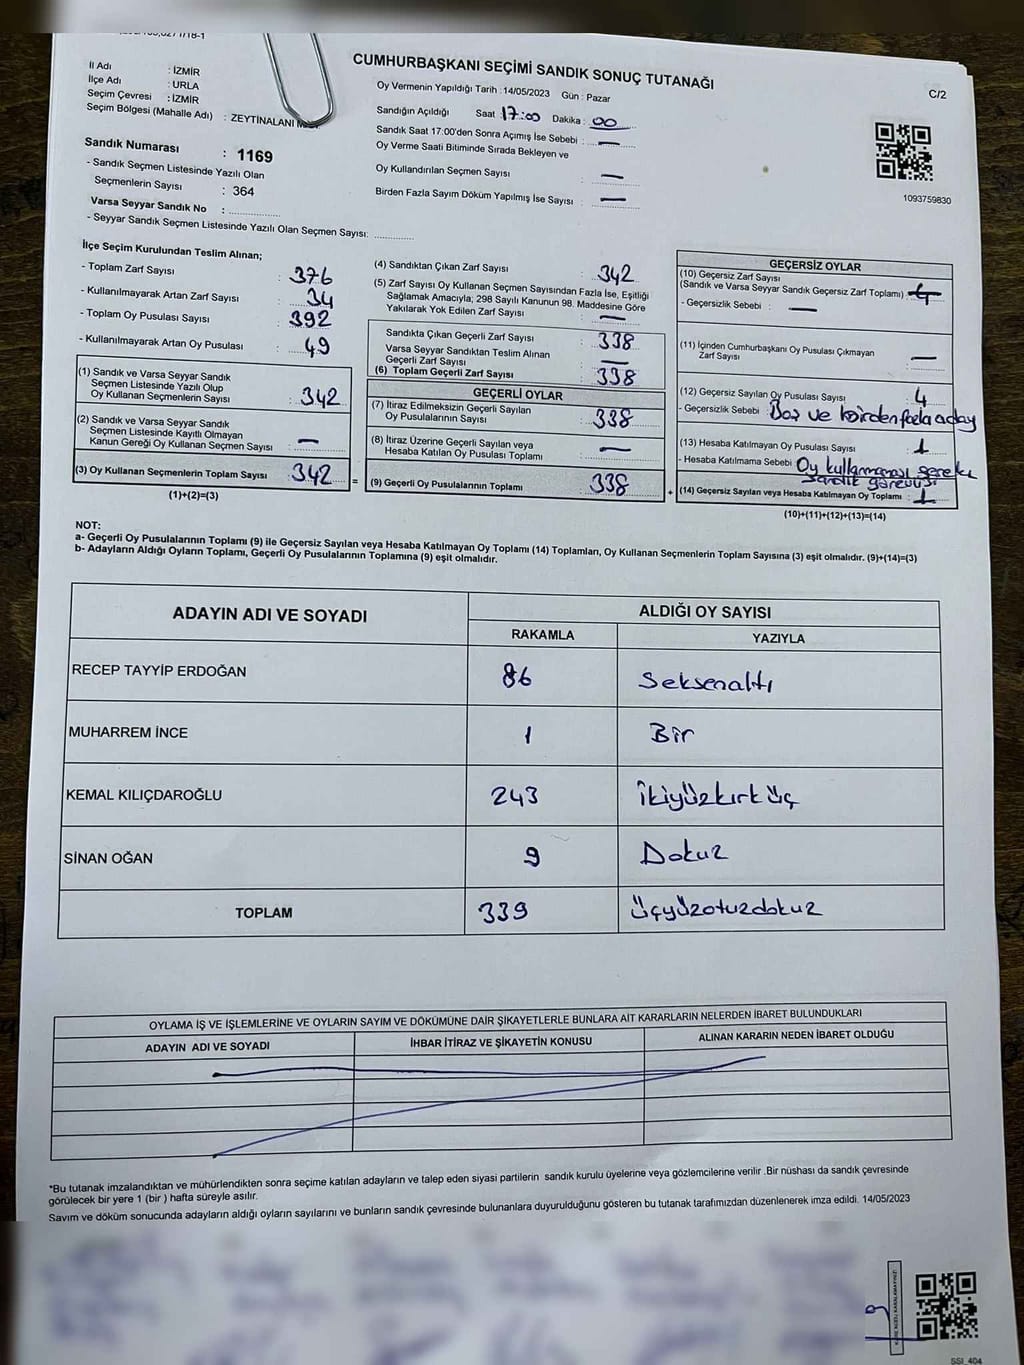 CUMHURBAŞKANI SEÇİMİ SANDIK SONUÇ TUTANAĞI
C/2
İl Adı : İZMİR
İlçe Adı : URLA
Seçim Çevresi : İZMİR
Seçim Bölgesi (Mahalle Adı) : ZEYTİNALANI
Oy Vermenin Yapıldığı Tarih : 14/05/2023 Gün : Pazar
Sandığın Açıldığı Saat : 17:00 Dakika : 00
Sandık Saat 17:00'den Sonra Açımış İse Sebebi : —
Oy Verme Saati Bitiminde Sırada Bekleyen ve
Oy Kullandırılan Seçmen Sayısı : —
Birden Fazla Sayım Döküm Yapılmış İse Sayısı : —
1093759830
Sandık Numarası : 1169
- Sandık Seçmen Listesinde Yazılı Olan
Seçmenlerin Sayısı : 364
Varsa Seyyar Sandık No :
- Seyyar Sandık Seçmen Listesinde Yazılı Olan Seçmen Sayısı:
İlçe Seçim Kurulundan Teslim Alınan;
- Toplam Zarf Sayısı : 376
- Kullanılmayarak Artan Zarf Sayısı : 34
- Toplam Oy Pusulası Sayısı : 392
- Kullanılmayarak Artan Oy Pusulası : 49
(1) Sandık ve Varsa Seyyar Sandık
Seçmen Listesinde Yazılı Olup
Oy Kullanan Seçmenlerin Sayısı : 342
(2) Sandık ve Varsa Seyyar Sandık
Seçmen Listesinde Kayıtlı Olmayan
Kanun Gereği Oy Kullanan Seçmen Sayısı : —
(3) Oy Kullanan Seçmenlerin Toplam Sayısı : 342
(1)+(2)=(3)
(4) Sandıktan Çıkan Zarf Sayısı : 342
(5) Zarf Sayısı Oy Kullanan Seçmen Sayısından Fazla İse, Eşitliği
Sağlamak Amacıyla; 298 Sayılı Kanunun 98. Maddesine Göre
Yakılarak Yok Edilen Zarf Sayısı : —
Sandıkta Çıkan Geçerli Zarf Sayısı : 338
Varsa Seyyar Sandıktan Teslim Alınan
Geçerli Zarf Sayısı : —
(6) Toplam Geçerli Zarf Sayısı : 338
GEÇERLİ OYLAR
(7) İtiraz Edilmeksizin Geçerli Sayılan
Oy Pusulalarının Sayısı : 338
(8) İtiraz Üzerine Geçerli Sayılan veya
Hesaba Katılan Oy Pusulası Toplamı : —
(9) Geçerli Oy Pusulalarının Toplamı : 338
=
+
GEÇERSİZ OYLAR
(10) Geçersiz Zarf Sayısı
(Sandık ve Varsa Seyyar Sandık Geçersiz Zarf Toplamı) :
- Geçersizlik Sebebi : —
(11) İçinden Cumhurbaşkanı Oy Pusulası Çıkmayan
Zarf Sayısı : —
(12) Geçersiz Sayılan Oy Pusulası Sayısı : 4
- Geçersizlik Sebebi : Boş ve birden fazla aday
(13) Hesaba Katılmayan Oy Pusulası Sayısı : 1
- Hesaba Katılmama Sebebi : Oy kullanmaması gereken
sandık görevlisi
(14) Geçersiz Sayılan veya Hesaba Katılmayan Oy Toplamı : 1
(10)+(11)+(12)+(13)=(14)
NOT:
a- Geçerli Oy Pusulalarının Toplamı (9) ile Geçersiz Sayılan veya Hesaba Katılmayan Oy Toplamı (14) Toplamları, Oy Kullanan Seçmenlerin Toplam Sayısına (3) eşit olmalıdır. (9)+(14)=(3)
b- Adayların Aldığı Oyların Toplamı, Geçerli Oy Pusulalarının Toplamına (9) eşit olmalıdır.
ADAYIN ADI VE SOYADI
ALDIĞI OY SAYISI
RAKAMLA YAZIYLA
RECEP TAYYİP ERDOĞAN 86 Seksenaltı
MUHARREM İNCE 1 Bir
KEMAL KILIÇDAROĞLU 243 İkiyüzkırküç
SİNAN OĞAN 9 Dokuz
TOPLAM 339 Üçyüzotuzdokuz
OYLAMA İŞ VE İŞLEMLERİNE VE OYLARIN SAYIM VE DÖKÜMÜNE DAİR ŞİKAYETLERLE BUNLARA AİT KARARLARIN NELERDEN İBARET BULUNDUKLARI
ADAYIN ADI VE SOYADI İHBAR İTİRAZ VE ŞİKAYETİN KONUSU ALINAN KARARIN NEDEN İBARET OLDUĞU
*Bu tutanak imzalandıktan ve mühürlendikten sonra seçime katılan adayların ve talep eden siyasi partilerin sandık kurulu üyelerine veya gözlemcilerine verilir .Bir nüshası da sandık çevresinde
görülecek bir yere 1 (bir ) hafta süreyle asılır.
Sayım ve döküm sonucunda adayların aldığı oyların sayılarını ve bunların sandık çevresinde bulunanlara duyurulduğunu gösteren bu tutanak tarafımızdan düzenlenerek imza edildi. 14/05/2023
SSI_404